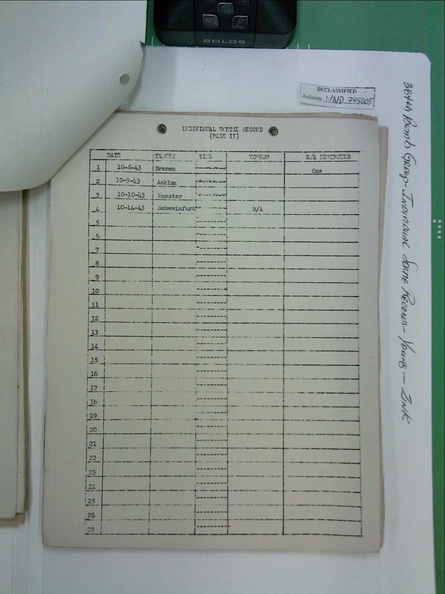 SOLOS
DECLASSIFIED
Authority NND 745005
INDIVIDUAL SORTIE RECORD
(PAGE II)
DATE TGT/CTY TIME E/A DESTROYED
1 10-8-43 Bremen One
2 10-9-43 Anklam
3 10-10-43 Munster
4 10-14-43 Schweinfurt N/A
5
6
7
8
9
10
11
12
13
14
15
16
17
18
19
20
21
22
23
24
25
26
27
Bomb Group - Individual Sortie Record - Young - Zwk